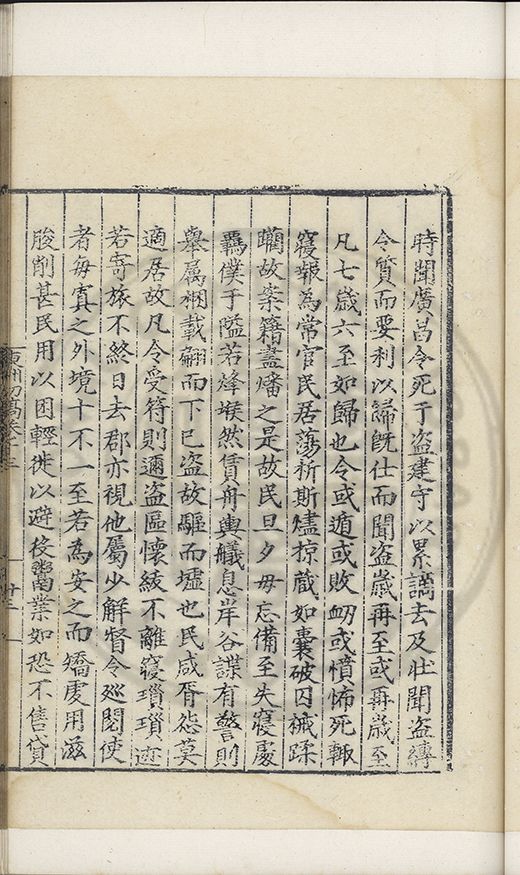 時聞廣昌令死于盗建守以累謫去及壯聞盗縛
令質而要利以歸旣仕而聞盗歲再至或再歲至
凡七歲六至如歸也令或遁或敗衂或憤怖死輙
寝報為常官民居蕩析斯燼掠蔵如囊破囚械蹂
躪故案籍盡燔之是故民旦夕毋忘備至失寝處
羈僕于隘若烽堠然賃舟輿艤息岸谷諜有警則
舉属梱載翩而下巳盗故驅而墟也民咸胥怨莫
適居故凡令受符則邇盗區懷紱不離寝瑣瑣迹
若寄旅不終日去郡亦視他屬少解督令巡閱使
者每寘之外境十不一至若為安之而矯虔用滋
朘削甚民用以困輕徙以避役鬻業如恐不售貸
十三